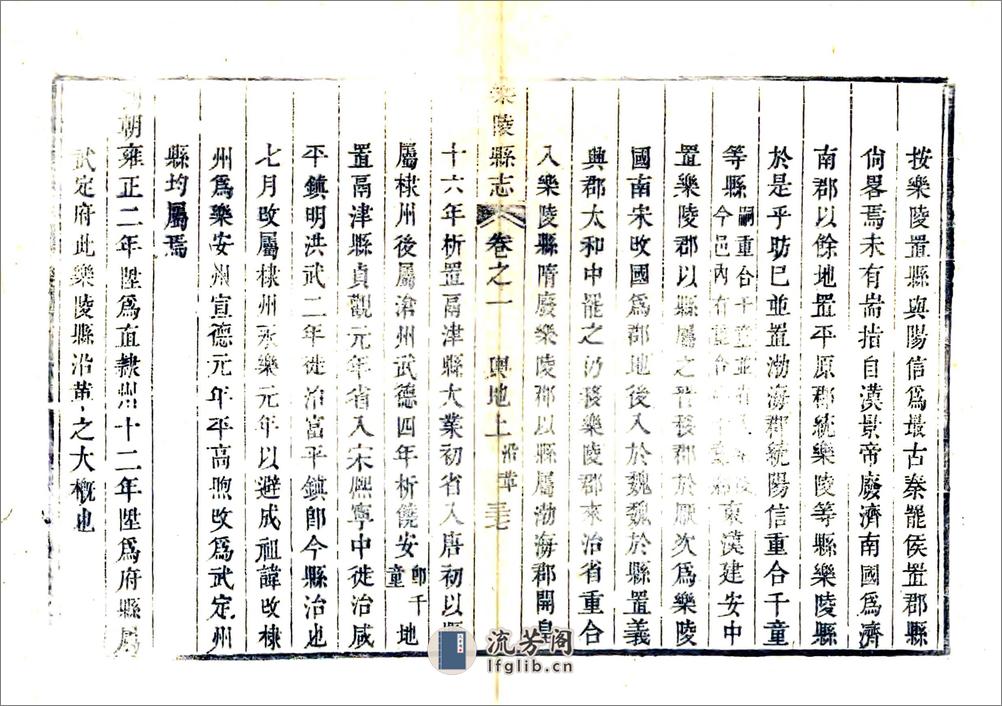 按樂陵置縣與陽信爲最古秦罷侯置郡縣
尙畧焉未有耑指自漢景帝廢濟南國爲濟
南郡以餘地置平原郡統樂陵等縣樂陵縣
於是乎昉已並置渤海郡統陽信重合千童
等縣嗣重合千童並
今邑內有重合
東漢建安中
置樂陵郡以縣屬之晉移郡於厭次爲樂陵
國南宋改國爲郡地後入於魏魏於縣置義
興郡太和中罷之仍移樂陵郡來治省重合
入樂陵縣隋廢樂陵郡以縣屬渤海郡開皇
樂陵縣志 卷之一 輿地上 沿革
十六年析置鬲津縣大業初省入唐初以縣
屬棣州後屬滄州武德四年析饒安卽千童地
置鬲津縣貞觀元年省入宋熙寧中徙治咸
平鎮明洪武二年徙治富平鎮卽今縣治也
七月改屬棣州永樂元年以避成祖諱改棣
州爲樂安州宣德元年平高煦改爲武定州
縣均屬焉
朝雍正二年陞爲直隸州十二年陞爲府縣屬
武定府此樂陵縣沿革之大槪也
流芳阁
lfglib.cn